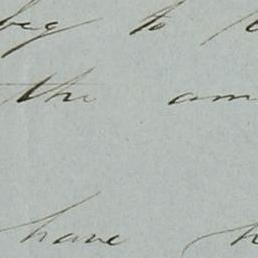 beg to
the am
have